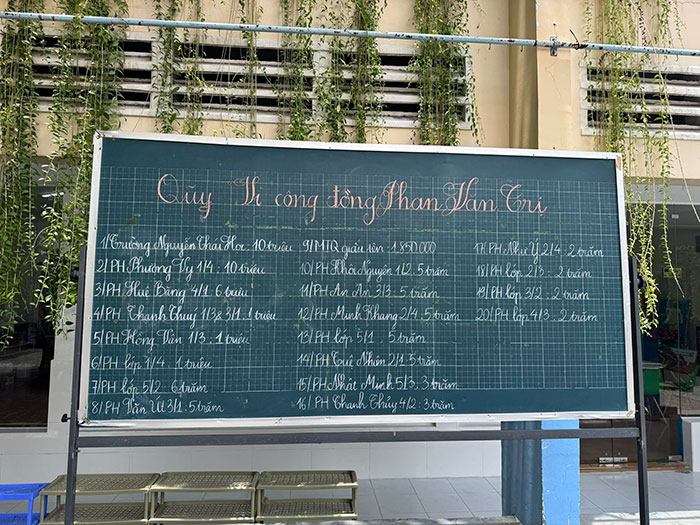 Quỹ Vì cộng đồng Phan Văn Trị
1/ Trường Nguyễn Thái Học : 10 triệu
2/ PH Phương Vy 1/4 : 10 triệu
3/ PH Huệ Băng 4/1 : 6 triệu
4/ PH Thanh Thuỷ 1/3 & 3/1 : 1 triệu
5/ PH Hồng Vân 1/3 : 1 triệu
6/ PH lớp 4/4 : 1 triệu
7/ PH lớp 5/2 : 6 trăm
8/ PH Vân Út 3/1 : 5 trăm
9/ MTQ giấu tên : 1.850.000
10/ PH Khôi Nguyên 1/2 : 5 trăm
11/ PH An An 3/3 : 5 trăm
12/ PH Minh Khang 2/4 : 5 trăm
13/ PH lớp 5/1 : 5 trăm
14/ PH Tuệ Nhiên 2/1 : 5 trăm
15/ PH Nhật Minh 5/3 : 3 trăm
16/ PH Thanh Thúy 4/2 : 3 trăm
17/ PH Như Ý 2/4 : 2 trăm
18/ PH lớp 2/3 : 2 trăm
19/ PH lớp 3/2 : 2 trăm
20/ PH lớp 4/3 : 2 trăm